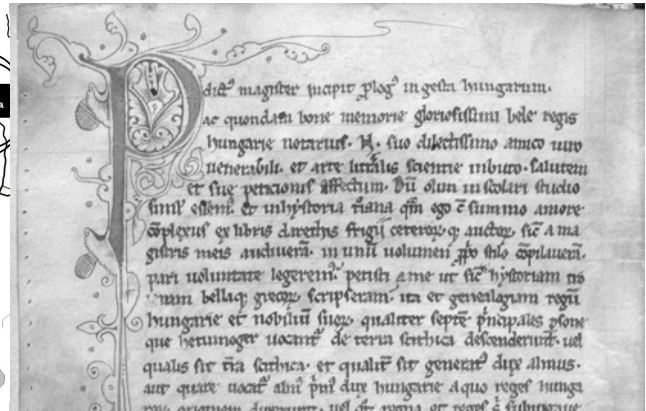 P dict᷒ magister incipit ꝓlog᷒ in gesta hungarum.
ac quondam bone memorie gloriosissimi bele regis
hungarie notarius. N. suo dilectissimo amico uiro
uenerabili. et arte litt̄alis scientie inbuto. salutem
et sue peticionis affectum. Dū olim in scolari studio
simul essem᷒. et in hystoria t̄iana qm̄ ego cū summo amore
cōplexus ex libris darethis frigii ceteroꝝ auctoꝝ sic̄ a ma
gistris meis audiuerā. in unū uolumen ꝓprio stilo cōpilauerā.
pari uoluntate legerem᷒. petisti a me ut sic̄ hystoriam tro
ianam bellaꝗ grecoꝝ scripseram. ita et genealogiam regū
hungarie et nobiliū suoꝝ. qualiter septē p̄incipales ꝑsone
que hetumoger uocant᷒ de terra scithica descenderunt. uel
qualis sit t̄ra scithica. et qualit̄ sit generat᷒ dux almus.
aut quare uocat᷒ alm᷒ p̄im᷒ dux hungarie a quo reges hunga
originem duxerunt. uel qͦt regna et reges